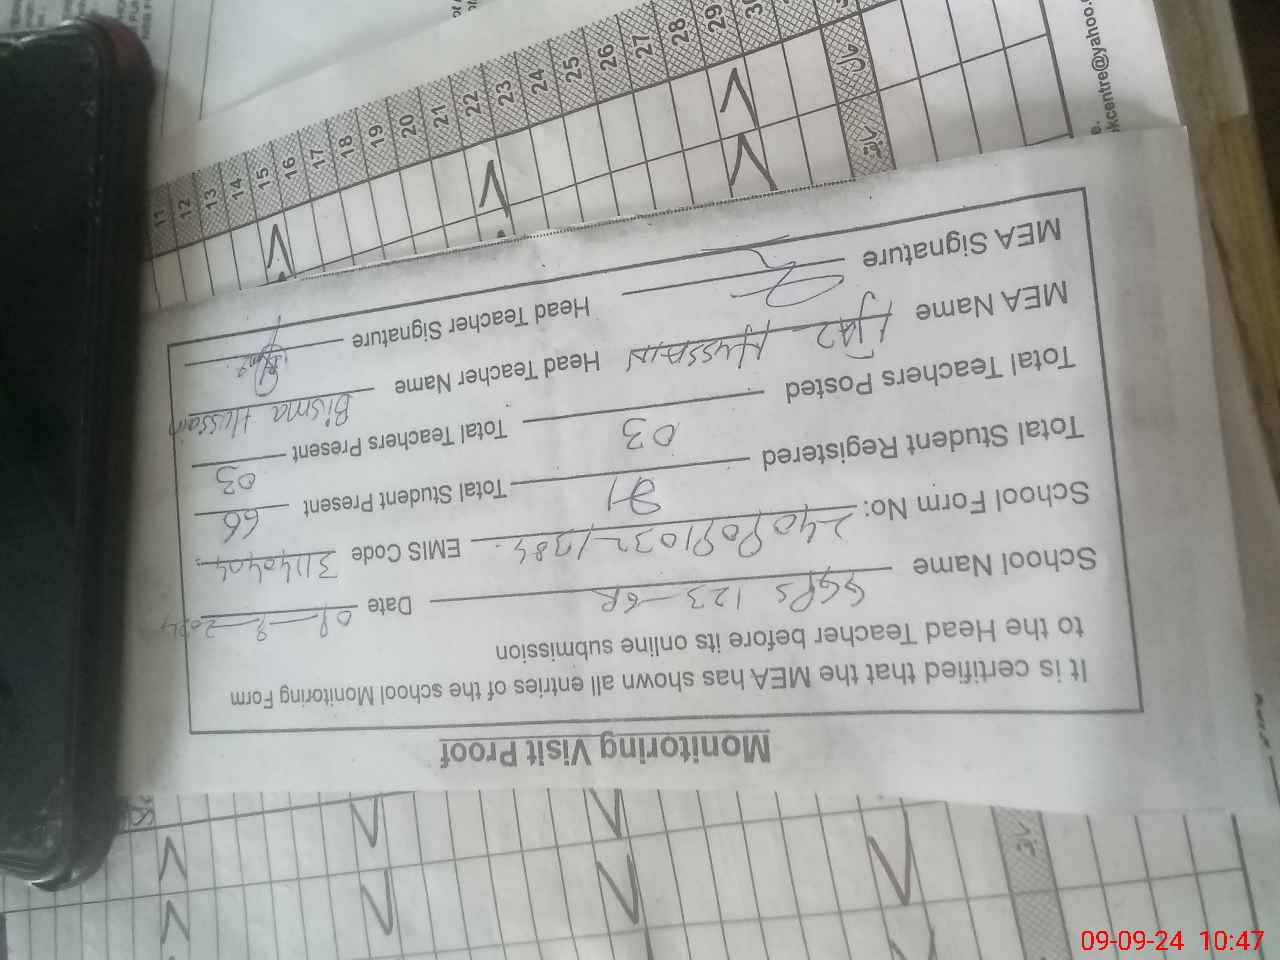 Monitoring Visit Proof
It is certified that the MEA has shown all entries of the school Monitoring Form
to the Head Teacher before its online submission
School Name GGPS 123-6R Date 09-9-2024
School Form No: EMIS Code 31140404
Total Student Registered Total Student Present 66
Total Teachers Posted 03 Total Teachers Present 03
MEA Name HUSSAIN Head Teacher Name Bisma Hussain
MEA Signature Head Teacher Signature
11 12 13 14 15 16 17 18 19 20 21 22 23 24 25 26 27 28 29 30
حال
باقی
kcentre@yahoo.
09-09-24 10:47